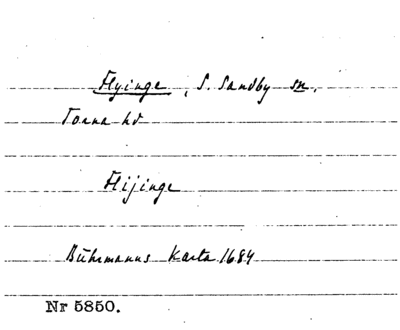 Flyinge, S. Sandby sn.
Torna hd
Flijinge
Buhrmanns Karta 1684
Nr 5850.